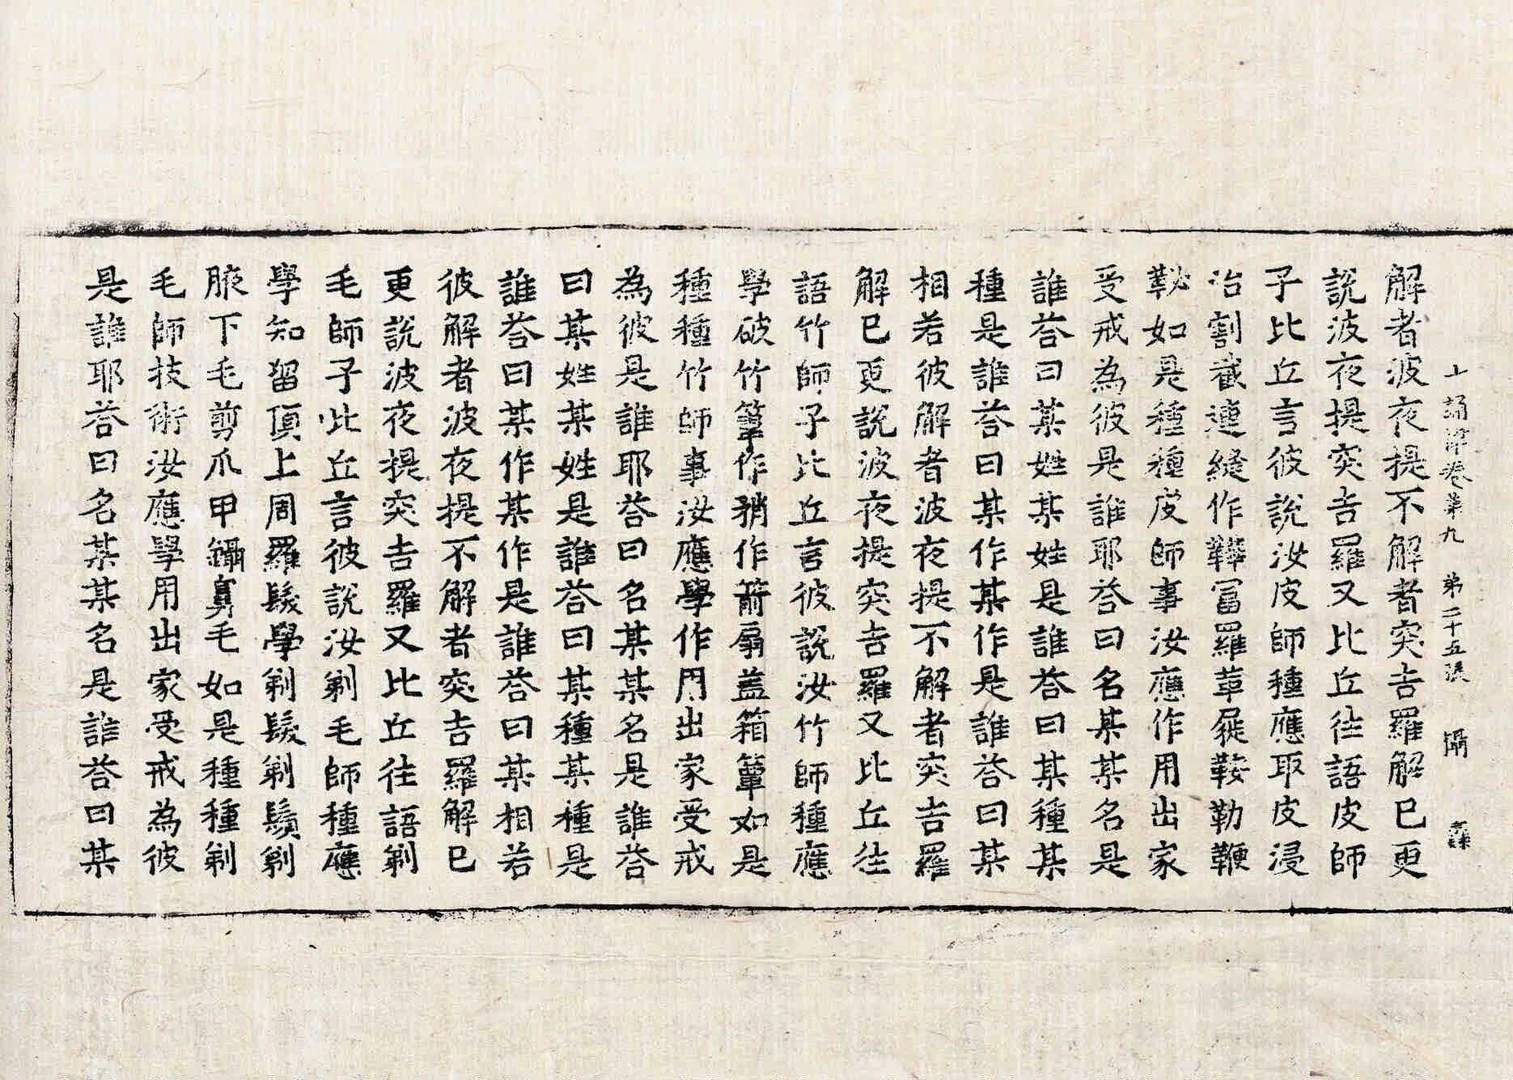 十誦律卷第九 第二十五張 攝
解者波夜提不解者突吉羅解已更
說波夜提突吉羅又比丘往語皮師
子比丘言彼說汝皮師種應取皮浸
治割截連縫作鞾富羅革屣鞍勒鞭
鞁如是種種皮師事汝應作用出家
受戒為彼是誰耶荅曰名某某名是
誰荅曰某姓某姓是誰荅曰某種某
種是誰荅曰某作某作是誰荅曰某
相若彼解者波夜提不解者突吉羅
解已更說波夜提突吉羅又比丘往
語竹師子比丘言彼說汝竹師種應
學破竹篾作矟作箭扇盖箱簞如是
種種竹師事汝應學作用出家受戒
為彼是誰耶荅曰名某某名是誰荅
曰某姓某姓是誰荅曰某種某種是
誰荅曰某作某作是誰荅曰某相若
彼解者波夜提不解者突吉羅解已
更說波夜提突吉羅又比丘往語剃
毛師子比丘言彼說汝剃毛師種應
學知留頂上周羅髮學剃髮剃鬚剃
腋下毛剪爪甲鑷鼻毛如是種種剃
毛師技術汝應學用出家受戒為彼
是誰耶荅曰名某某名是誰荅曰某